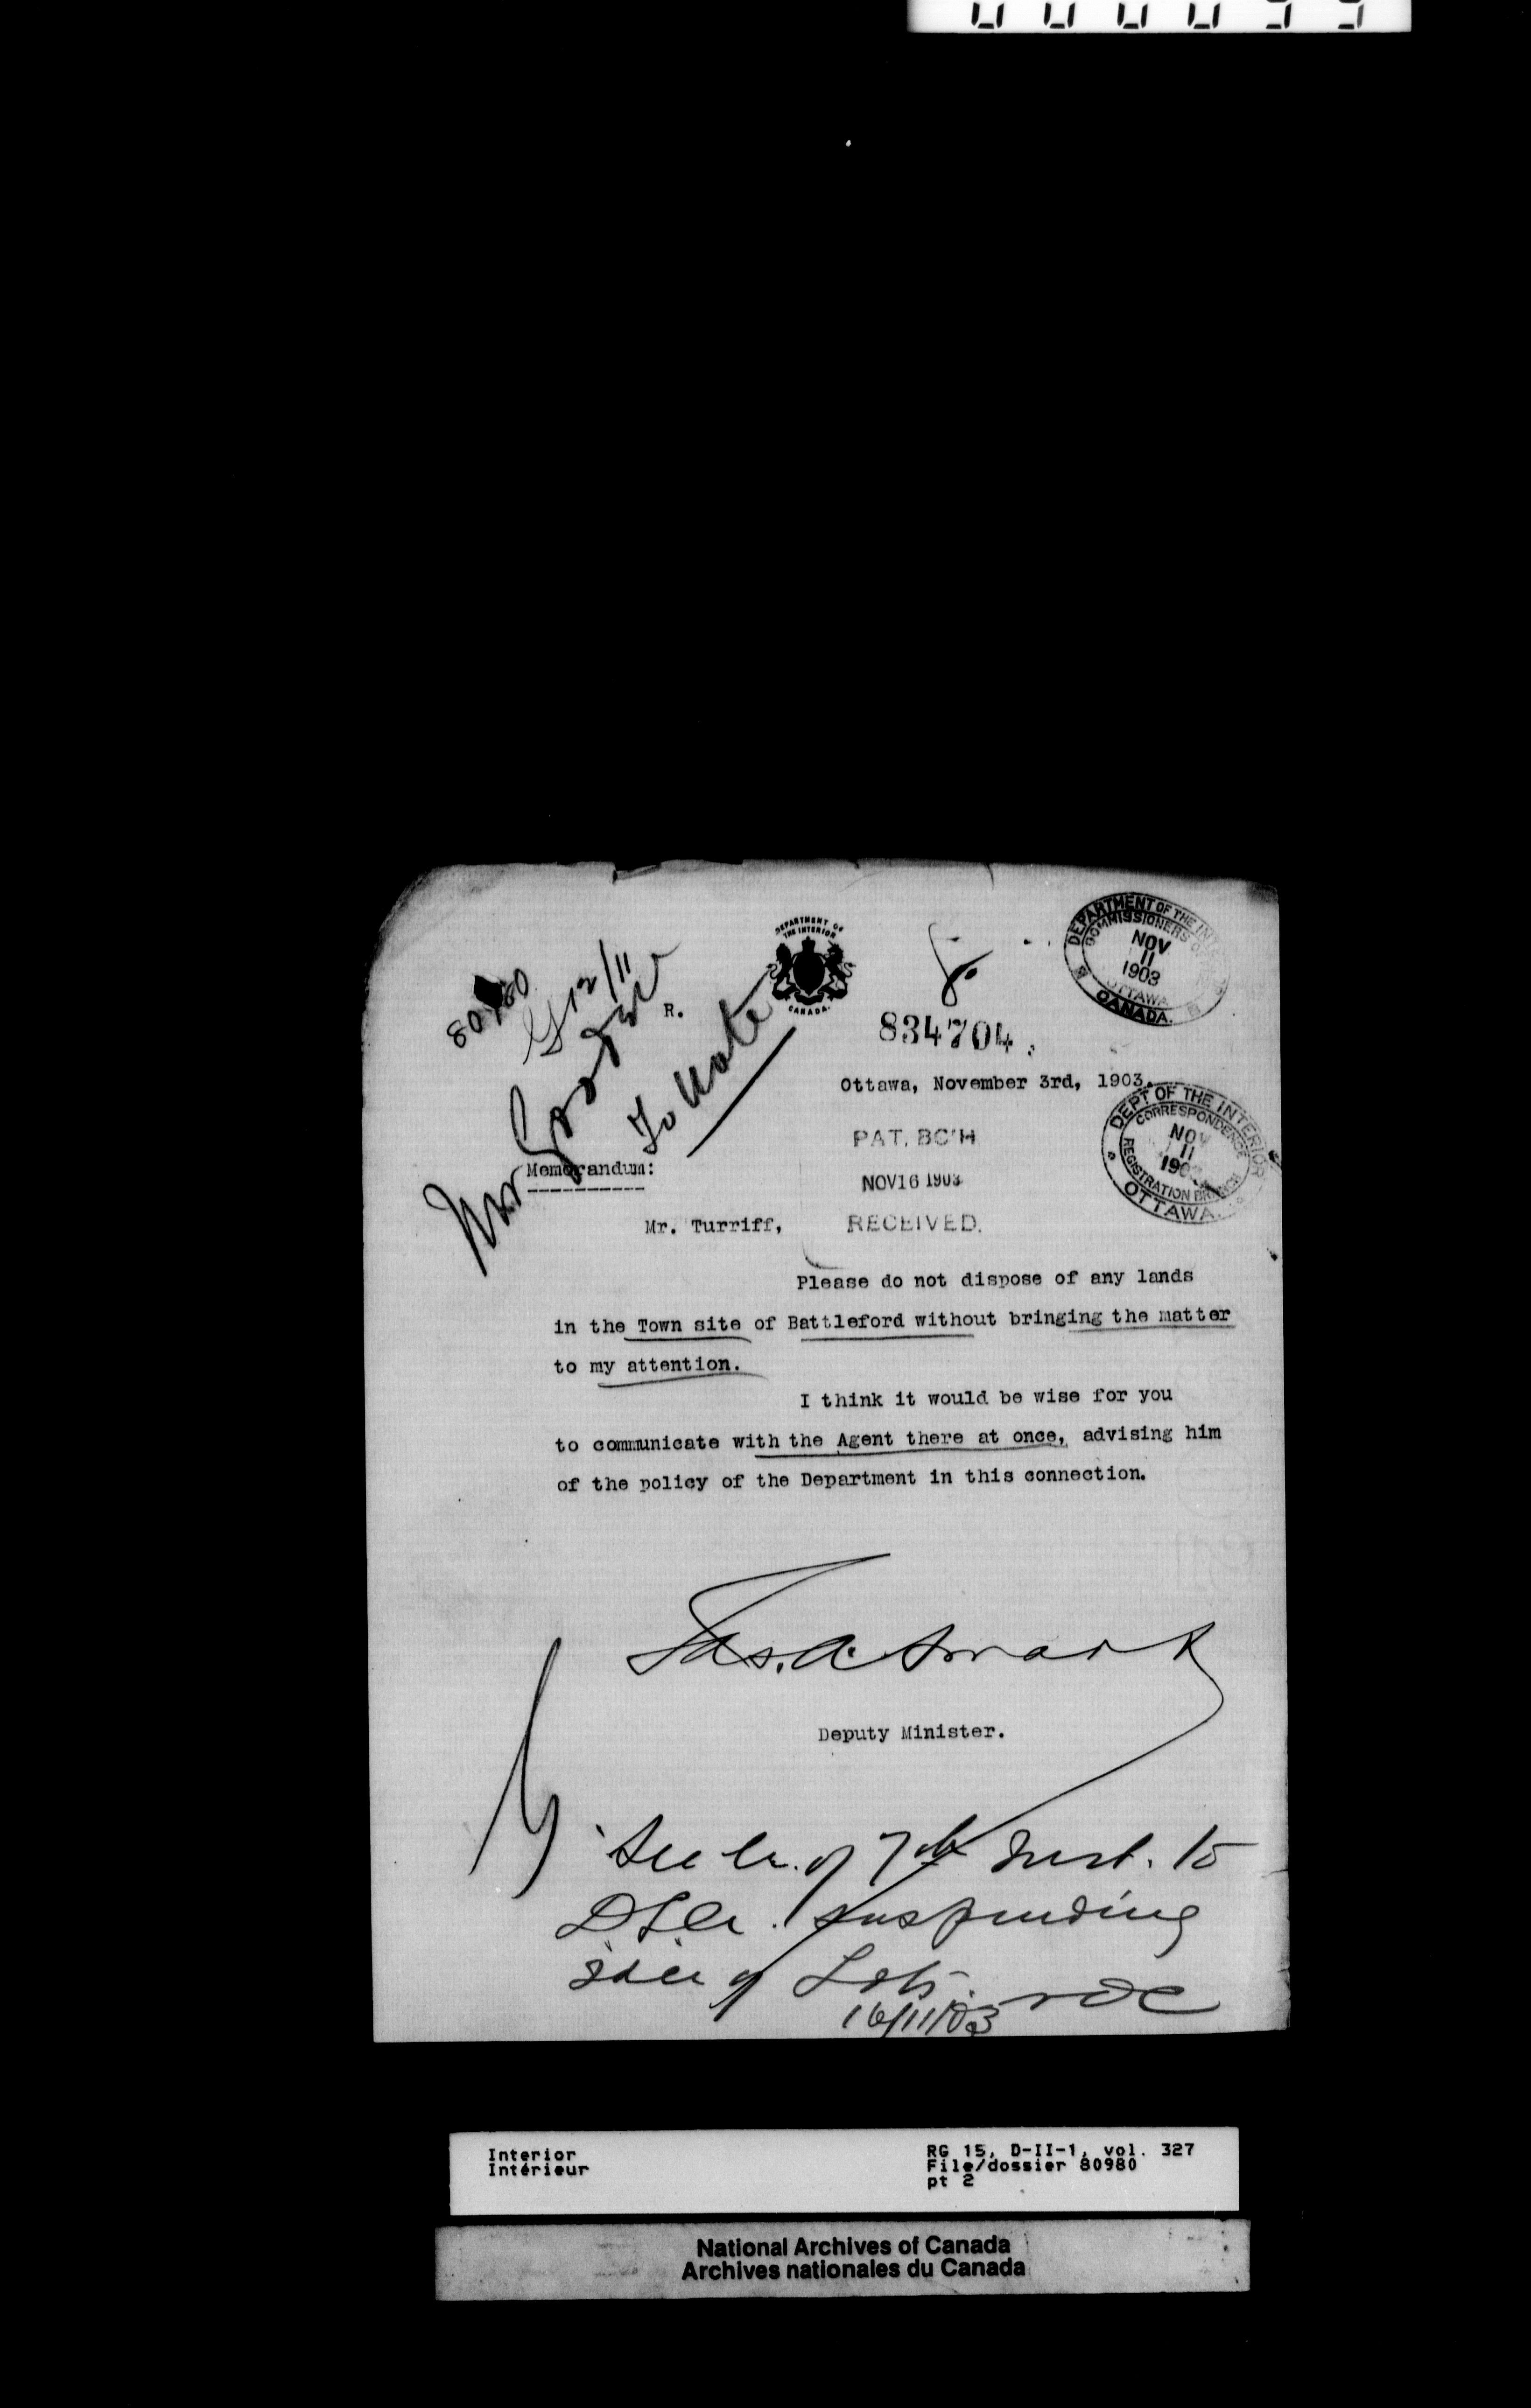 DEPARTMENT OF
THE INTERIOR
CANADA.
DEPARTMENT OF THE INT
COMMISSIONERS
NOV
11
1903
OTTAWA
CANADA.
80980
G 12/11
R.
To Note
834704
Ottawa, November 3rd, 1903.
DEPT OF THE INTERIOR
CORRESPONDENCE
NOV
11
190
REGISTRATION BRANCH
OTTAWA.
PAT. BCH
NOV 16 1903
RECEIVED.
Memorandum:
Mr. Turriff,
Please do not dispose of any lands
in the Town site of Battleford without bringing the matter
to my attention.
I think it would be wise for you
to communicate with the Agent there at once, advising him
of the policy of the Department in this connection.
Jas. A. Smart
Deputy Minister.
See lr. of 7th Inst. to
DLA. suspending
sale of Lots.
16/11/03
Interior
Intérieur
RG 15, D-II-1, vol. 327
File/dossier 80980
pt 2
National Archives of Canada
Archives nationales du Canada